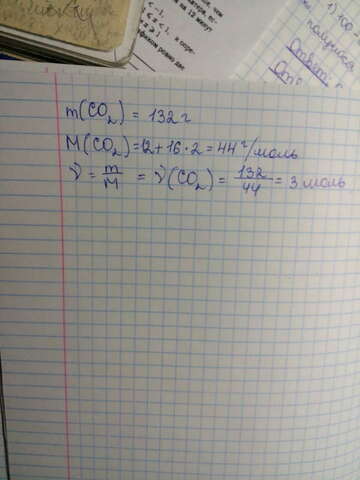 m(CO₂) = 132 г
M(CO₂)=12+16·2=44 г/моль
ν = m/M = ν(CO₂) = 132/44 = 3 моль
1) 100
Ответ